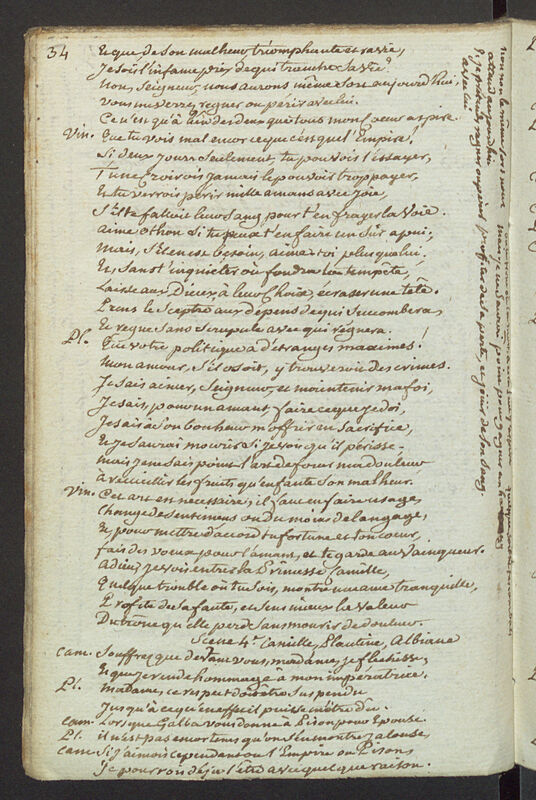 34
Et que de son malheur triomphante et ravie,
Je sois l'infame prix de qui tranche sa vie?
Non, Seigneur, nous aurons même sort aujourd'hui,
Vous me verrez regner ou périr avec lui.
Ce n'est qu'à l'un des deux que tout mon cœur aspire.
Vin. Que tu vois mal encor ce que c'est que l'Empire!
Si deux jours seulement, tu pouvois l'essayer,
Tu ne croirois jamais le pouvoir trop payer,
Et tu verrois périr mille amans avec joie,
S'il te falloit leur sang pour t'en frayer la voie.
aime othon si tu peux t'en faire un sûr apui;
Mais, s'il en est besoin, aime toi plus que lui,
Et, sans t'inquiéter où fondra la tempête,
Laisse aux Dieux, à leur choix, écraser une tête.
Prens le Sceptre aux dépens de qui sucombera,
Et regne sans scrupule avec qui régnera.
Pl. Que votre politique a d'étranges maximes!
Mon amour, s'il l'osoit, y trouveroit des crimes.
Je sais aimer, Seigneur, et maintenir ma foi,
Je sais, pour un amant faire ce que je doi,
Je sais à son bonheur m'offrir en sacrifice,
Et je saurai mourir si je vois qu'il périsse.
Mais je ne sais point l'art de forcer ma douleur
à recueillir les fruits qu'enfante son malheur.
Vin. Cet art est nécessaire, il faut en faire usage,
Change de sentimens ou du moins de langage,
Et, pour mettre d'accord ta fortune et ton cœur,
fais des vœux pour l'amant, et te garde au vainqueur.
adieu, je vois entrer la Princesse Camille,
Quelque trouble où tu sois, montre une ame tranquille,
Profite de sa faute, et sens mieux la valeur
Du trône qu'elle perd sans mourir de douleur.
Scène 4e. Camille, Plautine, Albiane
Cam. Souffrez que devant vous, madame, je fléchisse,
Et que je rende hommage à mon impératrice.
Pl. Madame, ce respect doit être suspendu
Jusqu'à ce qu'en effet il puisse m'être du.
Cam. Lorsque Galba vous donne à Pison pour Epouse.
Pl. il n'est pas encor tems qu'on s'en montre jalouse,
Cam. Si j'aimois cependant ou l'Empire ou Pison,
Je pourrois déja l'être avec quelque raison.
non non le même sort nous
attend aujourd'hui
je prétends regner ou périr
avec lui
profiter de sa perte, et jouir de son sang